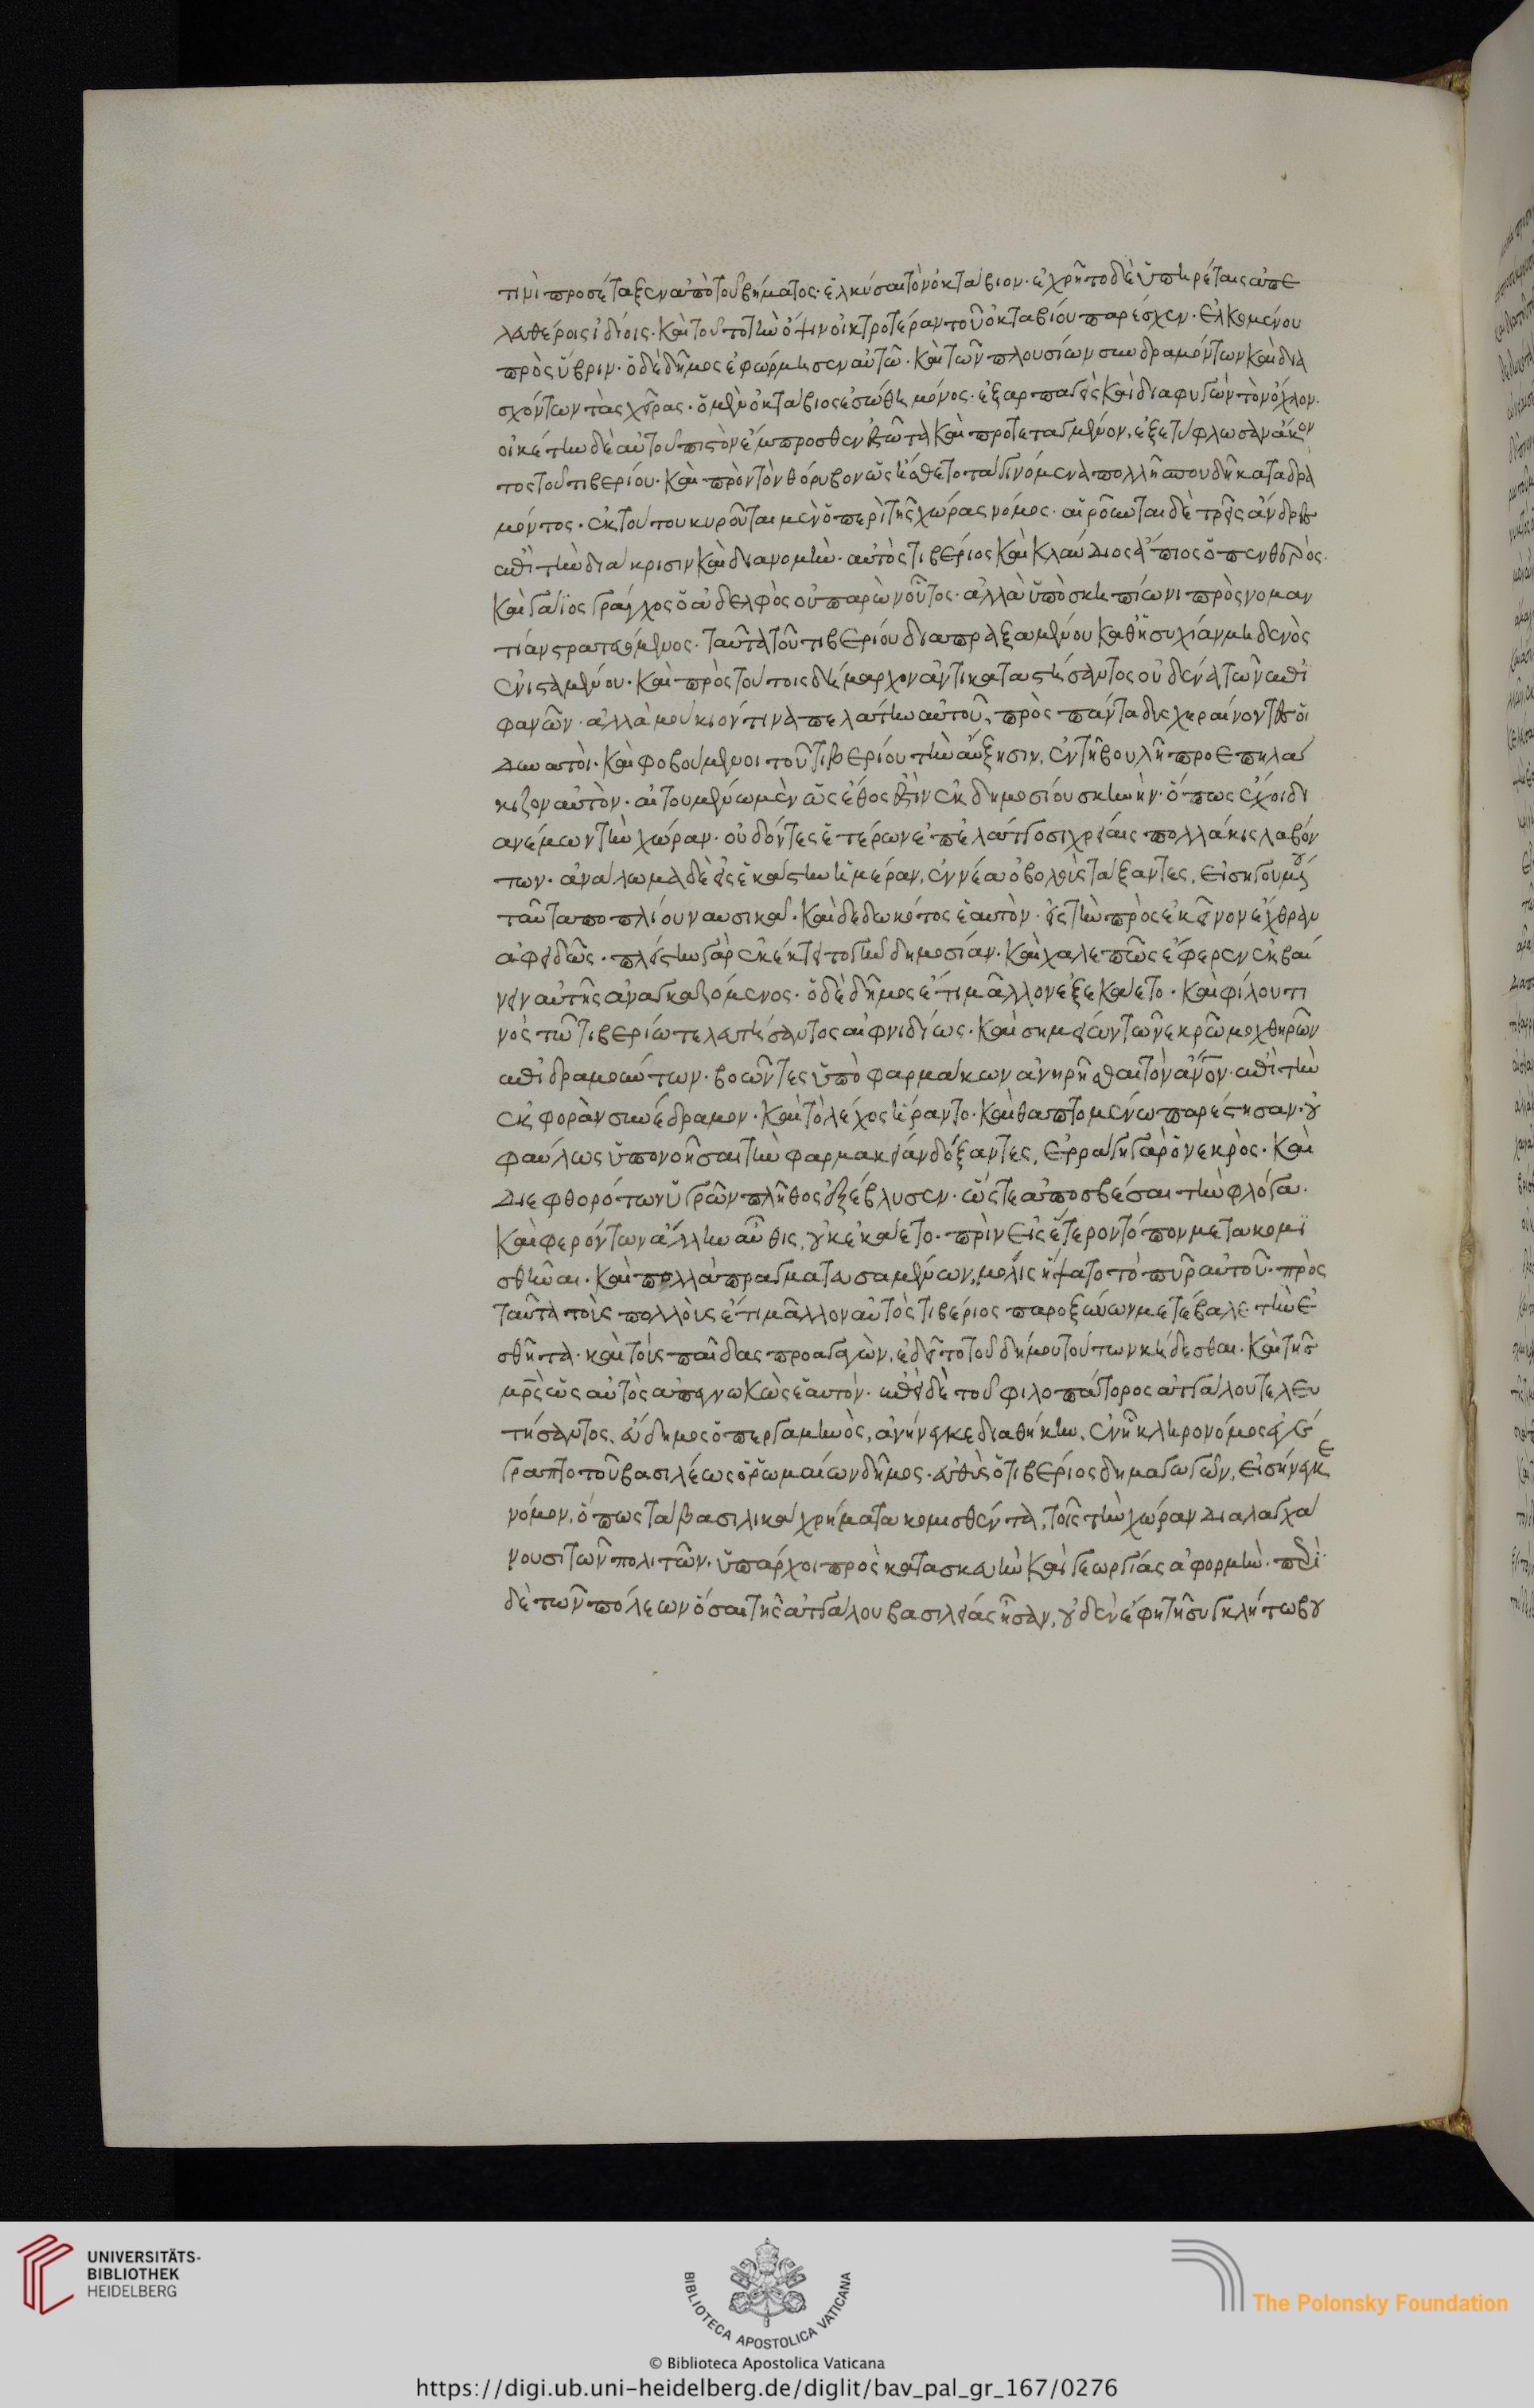 τινὶ προσέταξεν ἀπὸ τοῦ βήματος ἑλκύσαι τὸν ὀκτάβιον· ἐχρῆτο δὲ ὑπηρέταις ἀπε
λευθέροις ἰδίοις· καὶ τοῦτο τὴν ὄψιν οἰκτροτέραν τοῦ ὀκταβίου παρέσχεν· ἑλκομένου
πρὸς ὕβριν· ὁ δὲ δῆμος ἐφώρμησεν αὐτῶ· καὶ τῶν πλουσίων συνδραμόντων καὶ δια
σχόντων τὰς χεῖρας· ὁ μὲν ὀκτάβιος ἐσώθη μόνος· ἐξαρπαγεὶς καὶ διαφυγὼν τὸν ὄχλον·
οἰκέτην δὲ αὐτοῦ πιστὸν ἔμπροσθεν ἑστῶτα καὶ προτεταγμένον, ἐξετύφλωσαν ἄκον
τος τοῦ τιβερίου· καὶ πρὸς τὸν θόρυβον ὡς ἤσθετο τὰ γινόμενα πολλῆ σπουδῆ καταδρα
μόντος· ἐκ τούτου κυροῦται μὲν ὁ περὶ τῆς χώρας νόμος· αἱροῦνται δὲ τρεῖς ἄνδρες
ἐπὶ τὴν διάκρισιν καὶ διανομήν· αὐτὸς τιβέριος καὶ κλαύδιος ἄπιος ὁ πενθερός·
καὶ γάϊος γράγχος ὁ ἀδελφὸς οὐ παρὼν οὗτος· ἀλλὰ ὑπὸ σκηπίωνι πρὸς νομαν
τίαν στρατευόμενος· ταῦτα τοῦ τιβερίου διαπραξαμένου καθ' ἡσυχίαν μηδενὸς
ἐνισταμένου· καὶ πρὸς τούτοις δήμαρχον ἀντικαταστήσαντος οὐδένα τῶν ἐπι
φανῶν· ἀλλὰ μούκιόν τινα πελάτην αὐτοῦ, πρὸς πάντα δυσχεραίνοντες οἱ
δυνατοὶ· καὶ φοβούμενοι τοῦ τιβερίου τὴν αὔξησιν, ἐν τῆ βουλῆ προεπηλά
κιζον αὐτὸν· αἰτουμένω μὲν ὡς ἔθος ἐστὶν ἐκ δημοσίου σκηνὴν· ὅπως ἔχοι δι
ανέμων τὴν χώραν· οὐ δόντες ἑτέρων ἐπ' ἐλάττοσι χρείαις πολλάκις λαβόν
των· ἀνάλωμα δὲ εἰς ἑκάστην ἡμέραν, ἐννέα ὀβολοὺς τάξαντες, εἰσηγουμένου
ταῦτα ποπλίου νασικᾶ· καὶ δεδωκότος ἑαυτὸν· εἰς τὴν πρὸς ἐκεῖνον ἔχθραν
ἀφειδῶς· πλείστην γὰρ ἐκέκτητο γῆν δημοσίαν· καὶ χαλεπῶς ἔφερεν ἐκβαί
νειν αὐτῆς ἀναγκαζόμενος· ὁ δὲ δῆμος ἔτι μᾶλλον ἐξεκαίετο· καὶ φίλου τι
νὸς τῶ τιβερίω τελευτήσαντος αἰφνιδίως· καὶ σημείων τῶ νεκρῶ μοχθηρῶν
ἐπιδραμόντων· βοῶντες ὑπὸ φαρμάκων ἀνηρῆσθαι τὸν ἄνον· ἐπὶ τὴν
ἐκφορὰν συνέδραμον· καὶ τὸ λέχος ἤραντο· καὶ θαπτομένω παρέστησαν· οὐ
φαύλως ὑπονοῆσαι τὴν φαρμακείαν δόξαντες, ἐρράγη γὰρ ὁ νεκρὸς· καὶ
διεφθορότων ὑγρῶν πλῆθος ἐξέβλυσεν· ὥστε ἀποσβέσαι τὴν φλόγα·
καὶ φερόντων ἄλλην αὖθις, οὐκ ἐκαίετο· πρὶν εἰς ἕτερον τόπον μετακομι
σθῆναι· καὶ πολλὰ πραγματευσαμένων, μόλις ἥψατο τὸ πῦρ αὐτοῦ· πρὸς
ταῦτα τοὺς πολλοὺς ἔτι μᾶλλον αὐτὸς τιβέριος παροξύνων μετέβαλε τὴν ἐ
σθῆτα· καὶ τοὺς παῖδας προαγαγὼν, ἐδεῖτο τοῦ δήμου τούτων κήδεσθαι· καὶ τῆς
μρς ὡς αὐτὸς ἀπεγνωκὼς ἑαυτόν· ἐπεὶ δὲ τοῦ φιλοπάτορος ἀττάλου τελευ
τήσαντος, εὔδημος ὁ περγαμηνὸς, ἀνήνεγκε διαθήκην, ἐν ἧ κληρονόμος ἐγέ
γραπτο τοῦ βασιλέως ὁ ῥωμαίων δῆμος· εὐθὺς ὁ τιβέριος δημαγωγῶν, εἰσήνεγκε
νόμον, ὅπως τὰ βασιλικὰ χρήματα κομισθέντα, τοῖς τὴν χώραν διαλαγχά
νουσι τῶν πολιτῶν, ὑπάρχοι πρὸς κατασκευὴν καὶ γεωργίας ἀφορμήν· περὶ
δὲ τῶν πόλεων ὅσαι τῆς ἀττάλου βασιλείας ἦσαν, οὐδὲν ἔφη τῆ συγκλήτω βου
UNIVERSITÄTS-
BIBLIOTHEK
HEIDELBERG
BIBLIOTECA APOSTOLICA VATICANA
The Polonsky Foundation
© Biblioteca Apostolica Vaticana
https://digi.ub.uni-heidelberg.de/diglit/bav_pal_gr_167/0276